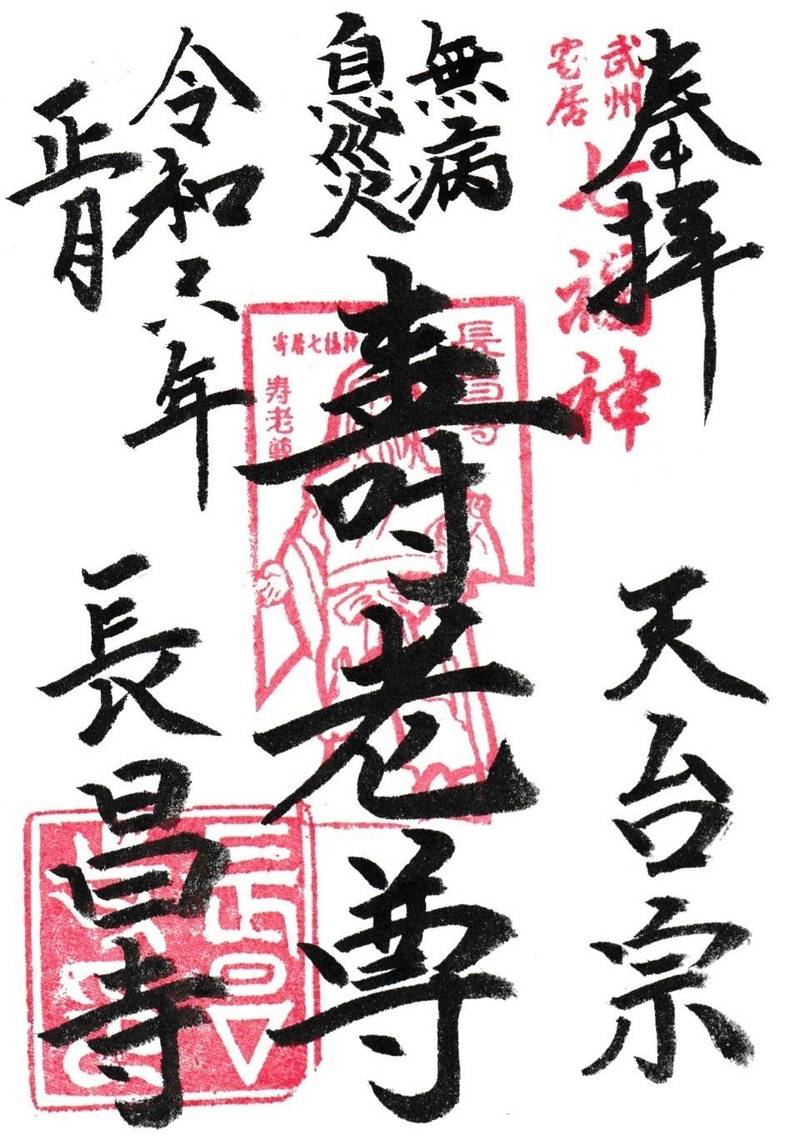 奉拝
武州
寄居
七福神
天台宗
無病
息災
壽老尊
長昌寺
寄居七福神
寿老尊
令和六年
正月
長昌寺